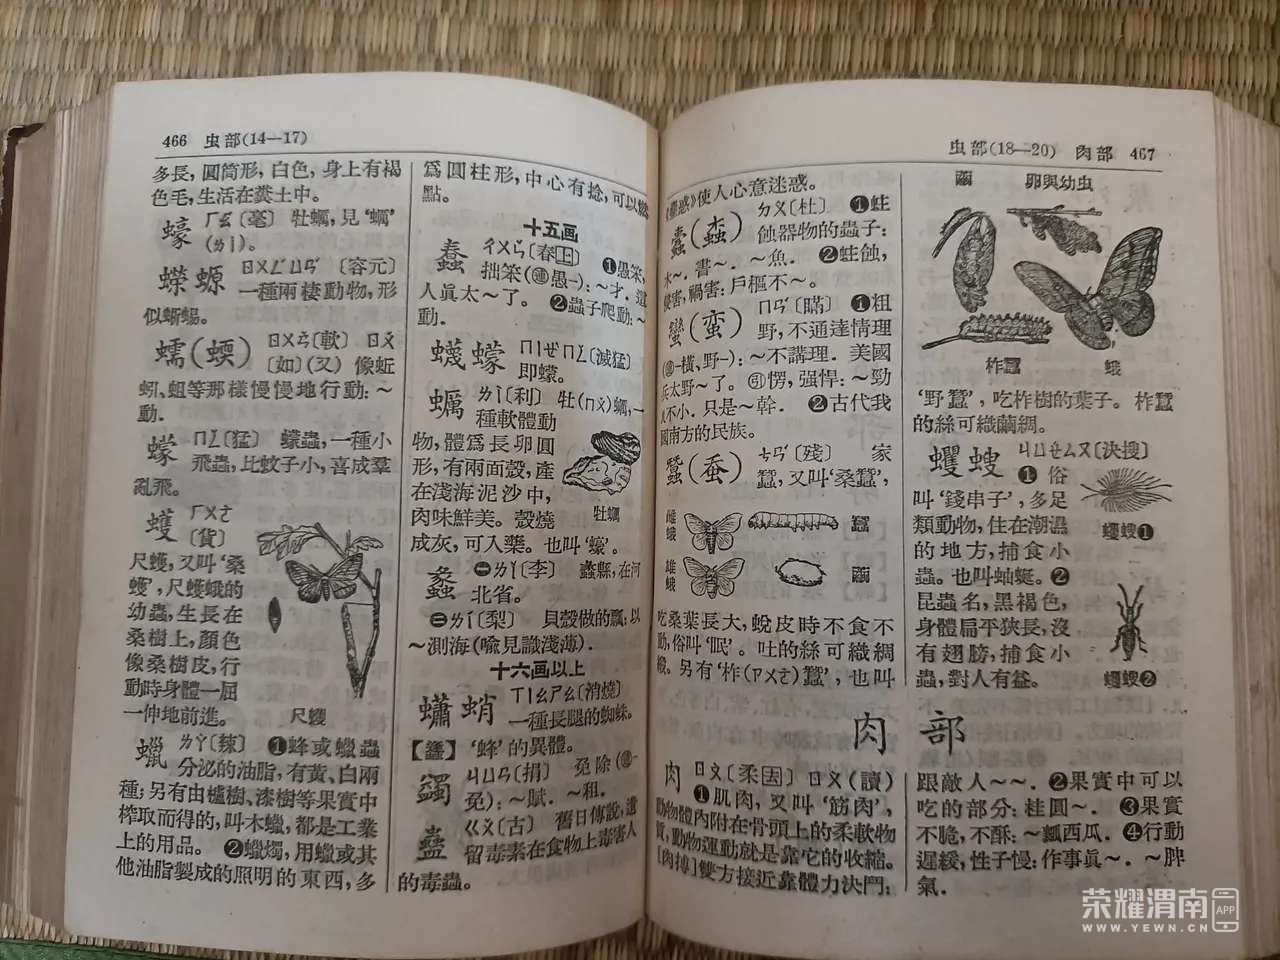 466 虫部(14—17)
多長，圓筒形，白色，身上有褐
色毛，生活在糞土中。
蠔 ㄏㄠˊ〔毫〕 牡蠣，見‘蠣’
(ㄌㄧˋ)。
蠑螈 ㄖㄨㄥˊㄩㄢˊ〔容元〕
一種兩棲動物，形
似蜥蜴。
蠕(蝡) ㄖㄨㄢˇ〔軟〕 ㄖㄨˊ
〔如〕(又) 像蚯
蚓、蛆等那樣慢慢地行動：～
動。
蠓 ㄇㄥˇ〔猛〕 蠓蟲，一種小
飛蟲，比蚊子小，喜成羣
亂飛。
蠖 ㄏㄨㄛˋ
〔貨〕
尺蠖，又叫‘桑
蠖’，尺蠖蛾的
幼蟲，生長在
桑樹上，顏色
像桑樹皮，行
動時身體一屈
一伸地前進。
尺蠖
蠟 ㄌㄚˋ〔辣〕 ❶蜂或蠟蟲
分泌的油脂，有黃、白兩
種；另有由櫨樹、漆樹等果實中
榨取而得的，叫木蠟，都是工業
上的用品。 ❷蠟燭，用蠟或其
他油脂製成的照明的東西，多
爲圓柱形，中心有捻，可以燃
點。
十五画
蠢 ㄔㄨㄣˇ〔春上〕 ❶愚笨，
拙笨(連愚—)：～才．這
人眞太～了。 ❷蟲子爬動：～
動．
蠛蠓 ㄇㄧㄝˋㄇㄥˇ〔滅猛〕
即蠓。
蠣 ㄌㄧˋ〔利〕 牡(ㄇㄨˇ)蠣，一
種軟體動
物，體爲長卵圓
形，有兩面殼，產
在淺海泥沙中，
肉味鮮美。殼燒
成灰，可入藥。也叫‘蠔’。
牡蠣
蠡 ㊀ㄌㄧˇ〔李〕 蠡縣，在河
北省。
㊁ㄌㄧˊ〔梨〕 貝殼做的瓢：以
～測海(喩見識淺薄)．
十六画以上
蠨蛸 ㄒㄧㄠㄕㄠ〔消燒〕
一種長腿的蜘蛛。
【蠭】 ‘蜂’的異體。
蠲 ㄐㄩㄢ〔捐〕 免除(連—
免)：～賦．～租．
蠱 ㄍㄨˇ〔古〕 舊日傳說，遺
留毒素在食物上毒害人
的毒蟲。
虫部(18—20) 肉部 467
《蠱惑》使人心意迷惑。
蠹(螙) ㄉㄨˋ〔杜〕 ❶蛀
蝕器物的蟲子：
木～．書～．～魚． ❷蛀蝕，
侵害，禍害：戶樞不～．
蠻(蛮) ㄇㄢˊ〔瞞〕 ❶粗
野，不通達情理
(連—橫、野—)：～不講理．美國
兵太野～了。 引愣，强悍：～勁
眞不小．只是～幹． ❷古代我
國南方的民族。
蠶(蚕) ㄘㄢˊ〔殘〕 家
蠶，又叫‘桑蠶’，
雌蛾 蠶
雄蛾 繭
吃桑葉長大，蛻皮時不食不
動，俗叫‘眠’。吐的絲可織綢
緞。另有‘柞(ㄗㄨㄛˋ)蠶’，也叫
繭 卵與幼虫
柞蠶 蛾
‘野蠶’，吃柞樹的葉子。柞蠶
的絲可織繭綢。
蠼螋 ㄐㄩㄝˊㄙㄡ〔決搜〕
❶俗
叫‘錢串子’，多足
類動物，住在潮濕
的地方，捕食小
蟲。也叫蚰蜒。❷
昆蟲名，黑褐色，
身體扁平狹長，沒
有翅膀，捕食小
蟲，對人有益。
蠼螋❶
蠼螋❷
肉部
肉 ㄖㄡˋ〔柔去〕 ㄖㄨˋ(讀)
❶肌肉，又叫‘筋肉’，
動物體內附在骨頭上的柔軟物
質，動物運動就是靠它的收縮。
[肉搏]雙方接近靠體力決鬥：
跟敵人～～． ❷果實中可以
吃的部分：桂圓～． ❸果實
不脆，不酥：～瓤西瓜．❹行動
遲緩，性子慢：作事眞～．～脾
氣．
荣耀渭南 APP
WWW.YEWN.CN